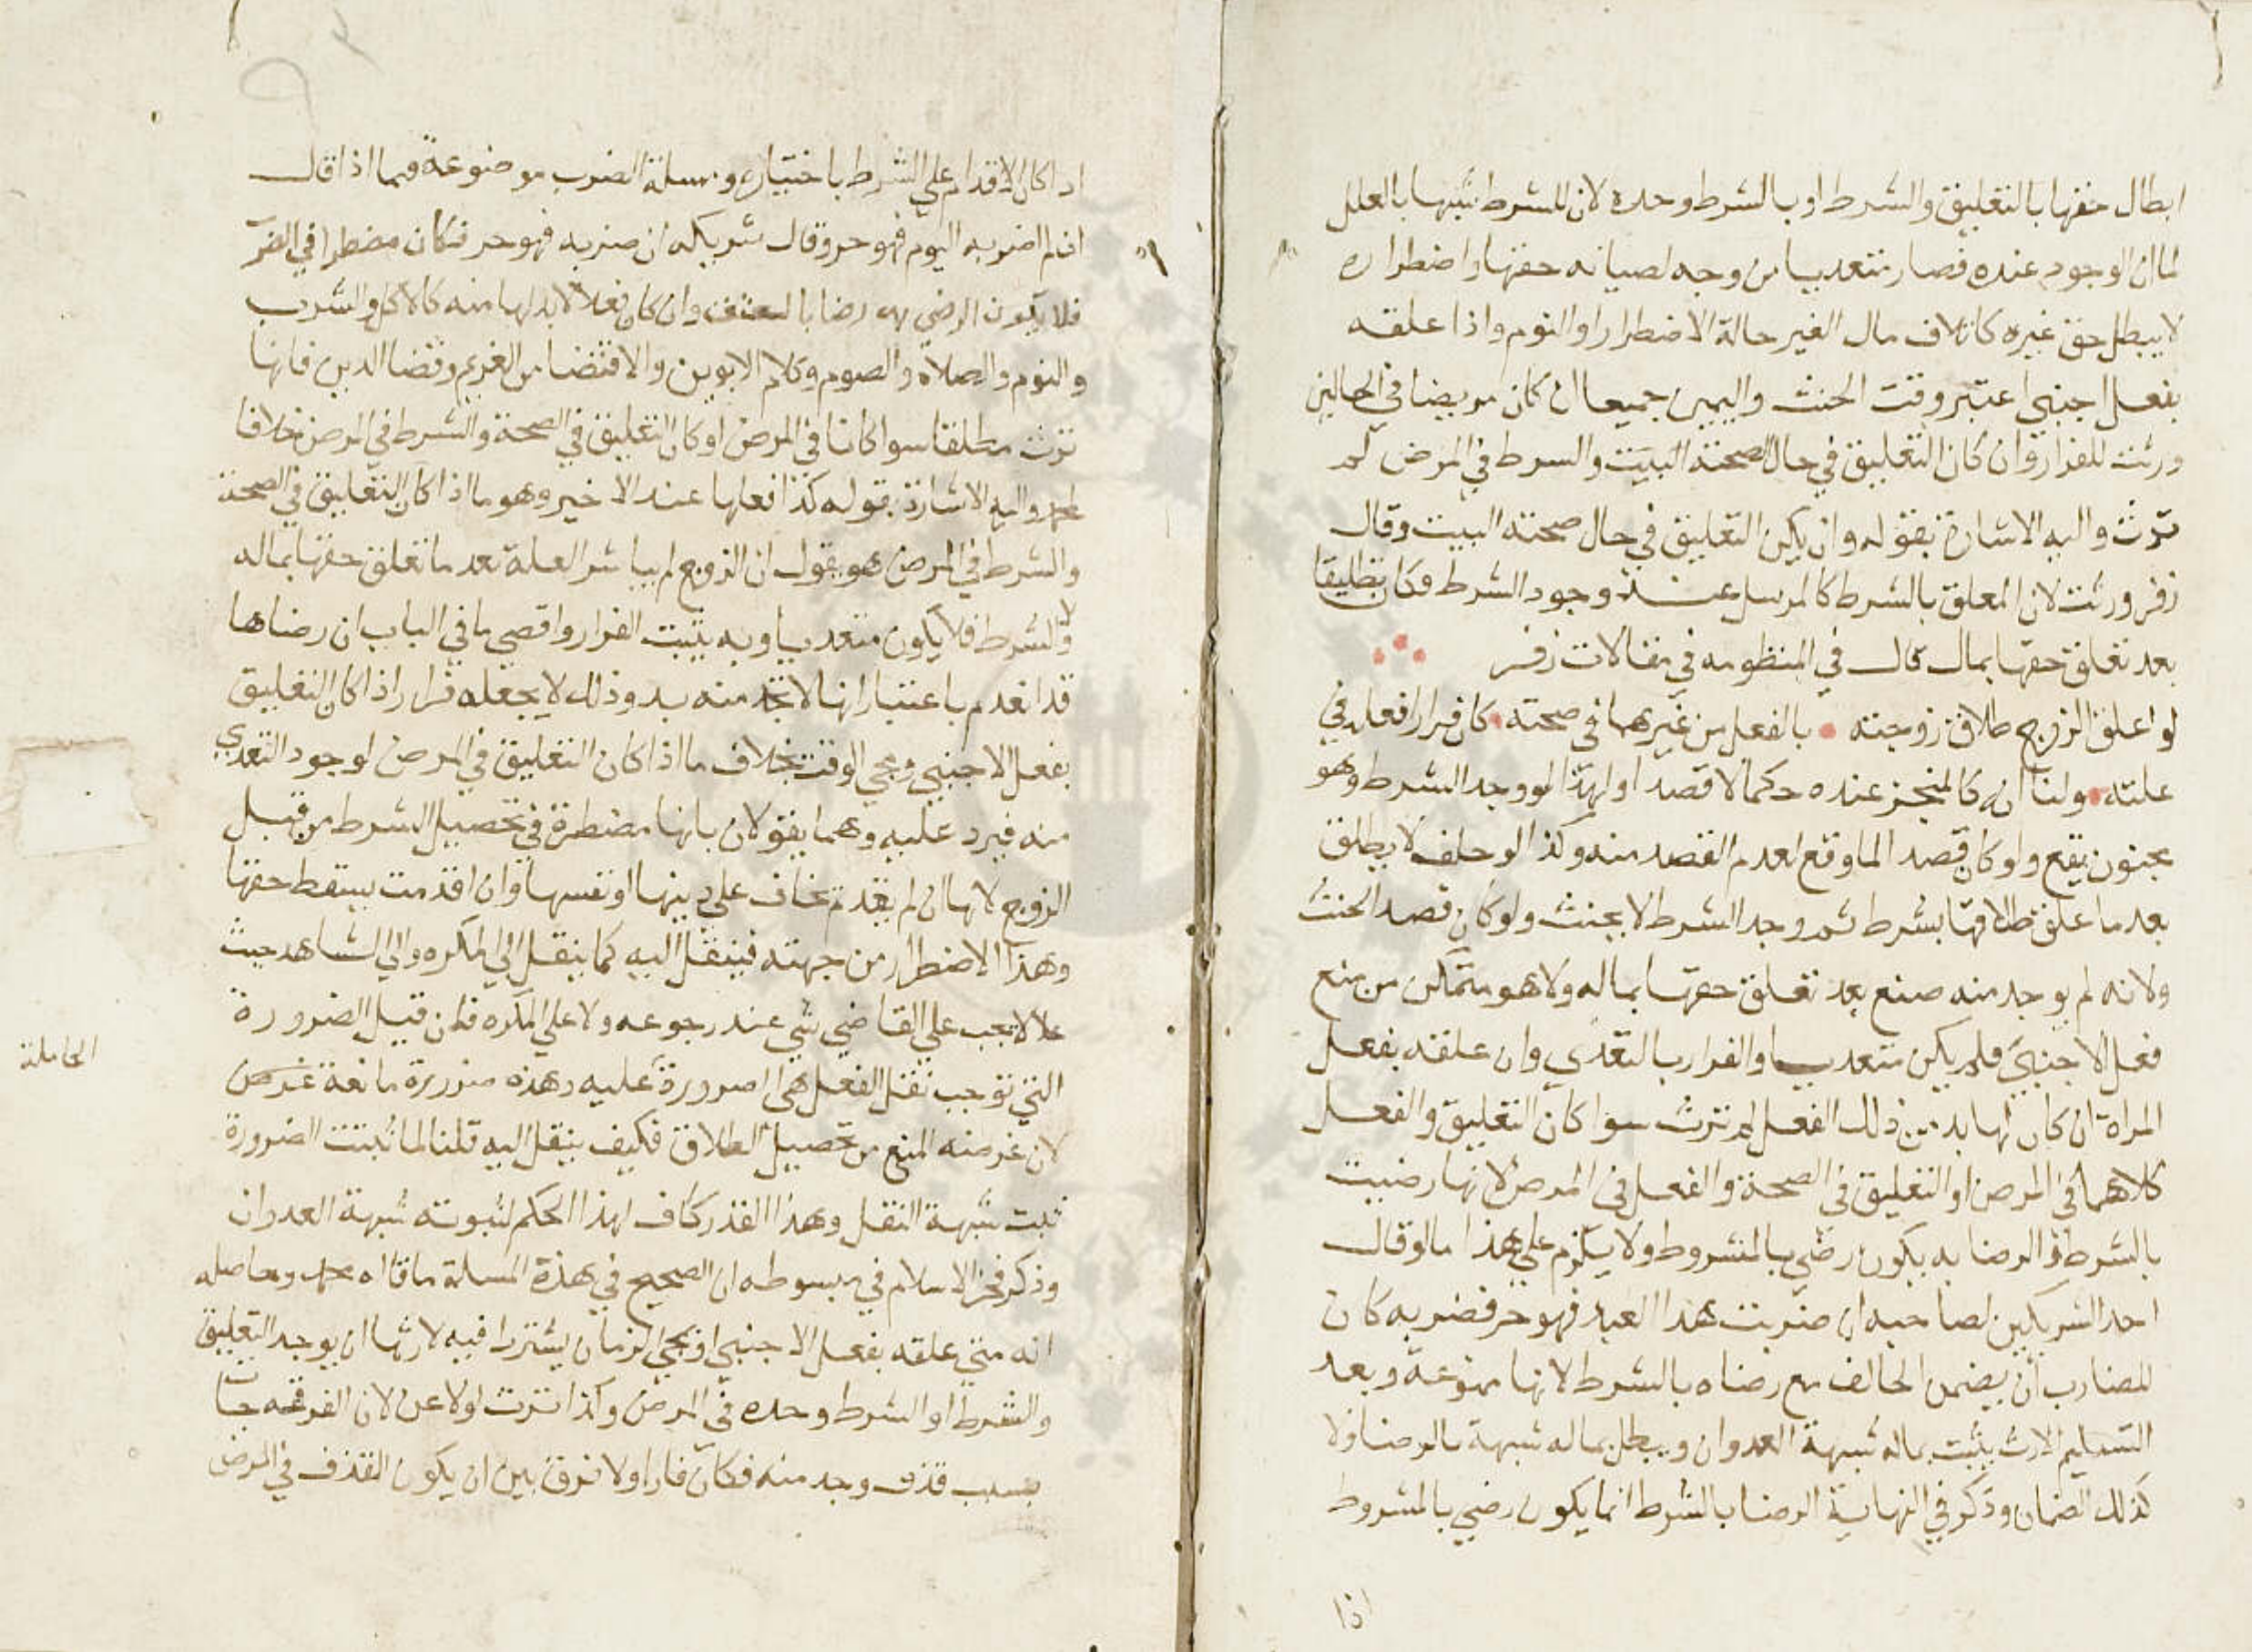 ابطال حقها بالتعليق والشرط او بالشرط وحده لان للشرط شبها بالعلل
لما ان الوجود عنده فصار متعديا من وجه لصيانه حقها واضطراره
لا يبطل حق غيره كاتلاف مال الغير حالة الاضطرار او النوم واذا علقه
بفعل اجنبي اعتبر وقت الحنث واليمين جميعا ان كان مريضا في الحالين
ورثت للفرار وان كان التعليق في حال الصحة البيت والشرط في المرض لم
ترث واليه الاشارة بقوله وان يكن التعليق في حال صحته البيت وقال
زفر ورثت لان المعلق بالشرط كالمرسل عند وجود الشرط فكان تطليقا
بعد تعلق حقها بمال قال في المنظومه في مقالات زفر
لو اعلق الزوج طلاق زوجته بالفعل من غيرهما في صحته كان فرارا فعله في
علته ولنا انه كالمنجز عنده حكما لا قصدا ولهذا لو وجد الشرط وهو
مجنون يقع ولو كان قصدا لما وقع لعدم القصد منه وكذا لو حلف لا يطلق
بعد ما علق طلاقها بشرط ثم وجد الشرط لا يحنث ولو كان قصد الحنث
ولانه لم يوجد منه صنع بعد تعلق حقها بماله ولا هو متمكن من منع
فعل الاجنبي فلم يكن متعديا والفرار بالتعدي وان علقه بفعل
المراة ان كان لها بد من ذلك الفعل لم ترث سوا كان التعليق والفعل
كلاهما في المرض او التعليق في الصحة والفعل في المرض لانها رضيت
بالشرط والرضا به يكون رضي بالمشروط ولا يلزم علي هذا ما لو قال
احد الشريكين لصاحبه ان ضربت هذا العبد فهو حر فضربه كان
للضارب ان يضمن الحالف مع رضاه بالشرط لانها ممنوعة وبعد
التسليم الارث يثبت بماله شبهة العدوان ويبطل بماله شبهة بالرضا ولا
كذلك الضمان وذكر في النهاية الرضا بالشرط انما يكون رضي بالمشروط
اذا
اذا كان الاقدام علي الشرط باختياره ومسلة الضرب موضوعة فيما اذا قال
ان لم اضربه اليوم فهو حر وقال شريكه ان ضربه فهو حر فكان مضطرا في الضر
فلا يكون الرضي به رضا بالعتق وان كان فعلا لا بد لها منه كالاكل والشرب
والنوم والصلاة والصوم وكلام الابوين والاقتضا من الغريم وقضا الدين فانها
ترث مطلقا سوا كانا في المرض او كان التعليق في الصحة والشرط في المرض خلافا
لمحمد واليه الاشارة بقوله كذا فعلها عند الاخير وهو ما اذا كان التعليق في الصحة
والشرط في المرض هو يقول ان الزوج لم يباشر العلة بعد ما تعلق حقها بماله
ولا الشرط فلا يكون متعديا وبه يثبت الفرار واقصي ما في الباب ان رضاها
قد انعدم باعتبار انها لا تجد منه بد وذلك لا يجعله فرارا اذا كان التعليق
بفعل الاجنبي ومجي الوقت بخلاف ما اذا كان التعليق في المرض لوجود التعدي
منه فيرد عليه وهما يقولان بانها مضطرة في تحصيل الشرط من قبل
الزوج لانها ان لم تقدم تخاف علي دينها او نفسها وان اقدمت يسقط حقها
وهذا الاضطرار من جهته فينقل اليه كما ينقل الي المكره والي الشاهد حيث
لا يجب علي القاضي شي عند رجوعه ولا علي المكره فان قيل الضرورة
التي توجب نقل الفعل هي الضرورة عليه وهذه ضرورة مانعة غرض
لان غرضه المنع من تحصيل الطلاق فكيف ينقل اليه قلنا لما ثبتت الضرورة
ثبت شبهة النقل وهذا القدر كاف لهذا الحكم لثبوته شبهة العدوان
وذكر فخر الاسلام في مبسوطه ان الصحيح في هذة المسلة ما قاله محمد وحاصله
انه متي علقه بفعل الاجنبي او بمجي الزمان يشترط فيه لارثها ان يوجد التعليق
والشرط او الشرط وحده في المرض وكذا ترث لو لاعن لان الفرقه جات
بسبب قذف وجد منه فكان فارا ولا فرق بين ان يكون القذف في المرض
الحاملة